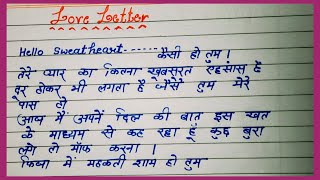 Love Letter
Hello sweatheart------ कैसी हो तुम ।
तेरे प्यार का कितना खूबसूरत एहसास है
दूर होकर भी लगता है जैसे तुम मेरे
पास हो
आज मैं अपने दिल की बात इस खत
के माध्यम से कह रहा हूं कुछ बुरा
लगे तो माफ करना ।
फिजा में महकती शाम हो तुम